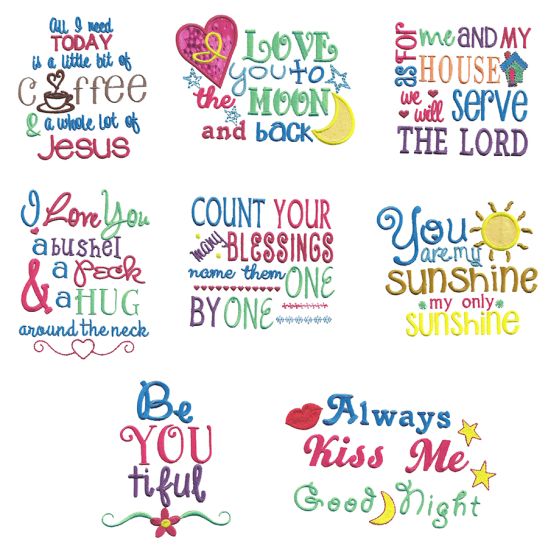 All I need
TODAY
is a little bit of
coffee
& a whole lot of
Jesus
I LOVE
you to
the MOON
and back
as for me and MY
HOUSE
we will serve
THE LORD
I Love You
a bushel
a Peck
& a HUG
around the neck
COUNT YOUR
many BLESSINGS
name them ONE
BY ONE
You
are my
sunshine
my only
sunshine
Be
YOU
tiful
Always
Kiss Me
Good Night